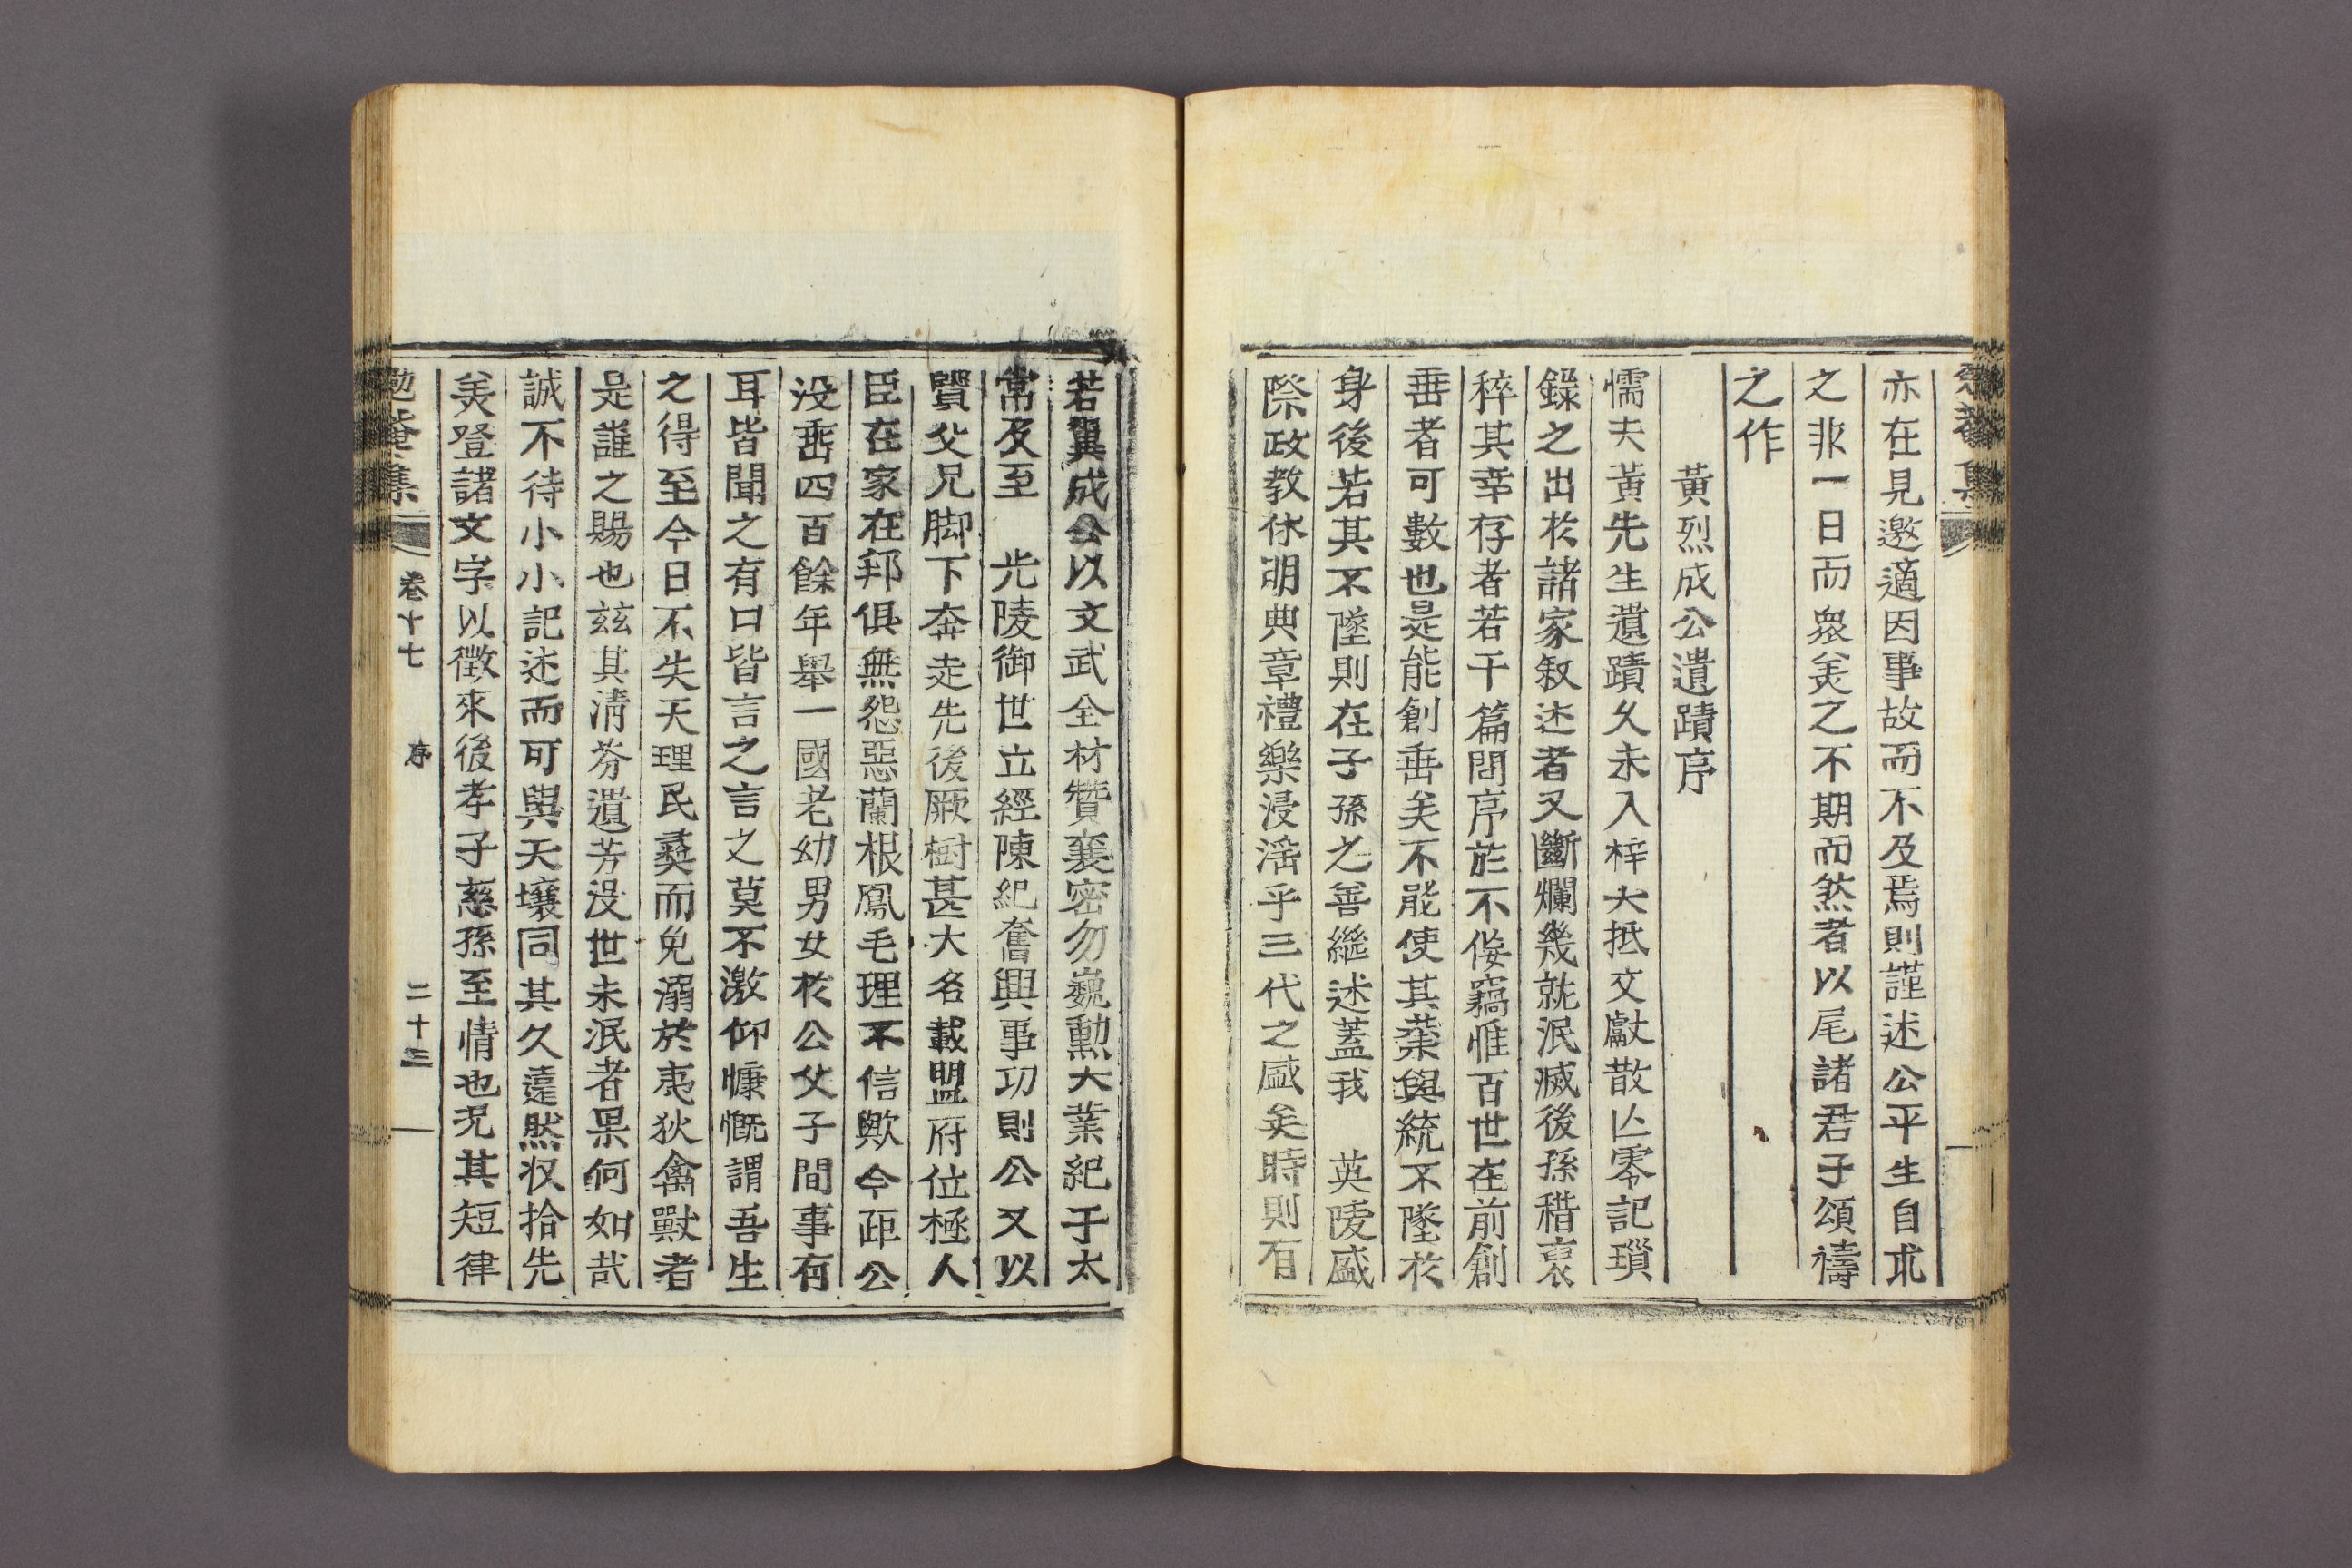 亦在見邀適因事故而不及焉則謹述公平生自求
之非一日而衆美之不期而然者以尾諸君子頌禱
之作
黃烈成公遺蹟序
懦夫黃先生遺蹟久未入梓大抵文獻散亾零記瑣
錄之出於諸家敍述者又斷爛幾就泯滅後孫稓裒
稡其幸存者若干篇問序於不佞竊惟百世在前創
垂者可數也是能創垂矣不能使其葉與統不墜於
身後若其不墜則在子孫之善繼述蓋我 英陵盛
際政敎休明典章禮樂浸淫乎三代之盛矣時則有
若翼成公以文武全材贊襄密勿巍勳大業紀于太
常及至 光陵御世立經陳紀奮興事功則公又以
賢父兄脚下奔走先後厥樹甚大名載盟府位極人
臣在家在邦俱無怨惡蘭根鳳毛理不信歟今距公
没垂四百餘年擧一國老幼男女於公父子間事有
耳皆聞之有口皆言之言之莫不激仰慷慨謂吾生
之得至今日不失天理民彛而免溺於夷狄禽獸者
是誰之賜也玆其淸芬遺芳没世未泯者果何如哉
誠不待小小記述而可與天壤同其久遠然收拾先
美登諸文字以徵來後孝子慈孫至情也况其短律
勉菴集 卷十七 序 二十三